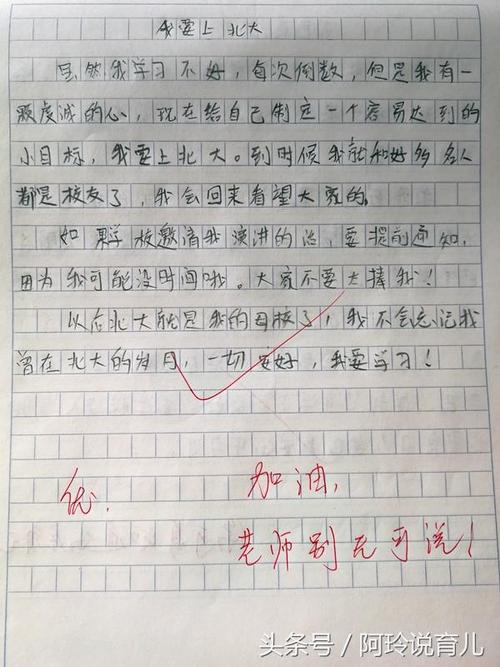 我要上北大
虽然我学习不好，每次倒数，但是我有一
颗虔诚的心，现在给自己制定一个容易达到的
小目标，我要上北大。到时候我就和好多名人
都是校友了，我会回来看望大家的。
如果学校邀请我演讲的话，要提前通知，
因为我可能没时间哦。大家不要太捧我！
以后北大就是我的母校了，我不会忘记我
曾在北大的岁月，一切安好，我要学习！
优.
加油，
老师别无可说！
头条号／阿玲说育儿